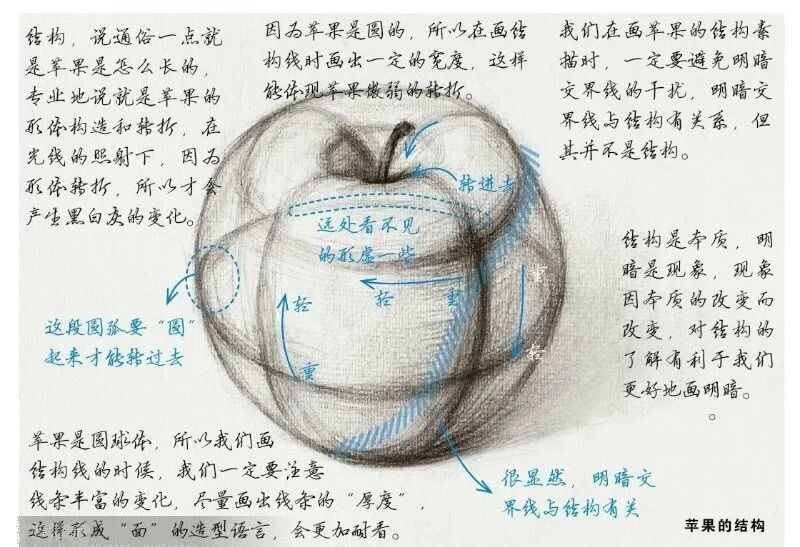 结构，说通俗一点就
是苹果是怎么长的，
专业地说就是苹果的
形体构造和转折，在
光线的照射下，因为
形体转折，所以才会
产生黑白灰的变化。
因为苹果是圆的，所以在画结
构线时画出一定的宽度，这样
能体现苹果微弱的转折。
我们在画苹果的结构素
描时，一定要避免明暗
交界线的干扰，明暗交
界线与结构有关系，但
其并不是结构。
转进去
远处看不见
的形虚一些
轻
重
轻
重
重
轻
这段圆弧要“圆”
起来才能转过去
结构是本质，明
暗是现象，现象
因本质的改变而
改变，对结构的
了解有利于我们
更好地画明暗。
。
苹果是圆球体，所以我们画
结构线的时候，我们一定要注意
线条丰富的变化，尽量画出线条的“厚度”，
这样形成“面”的造型语言，会更加耐看。
很显然，明暗交
界线与结构有关
苹果的结构